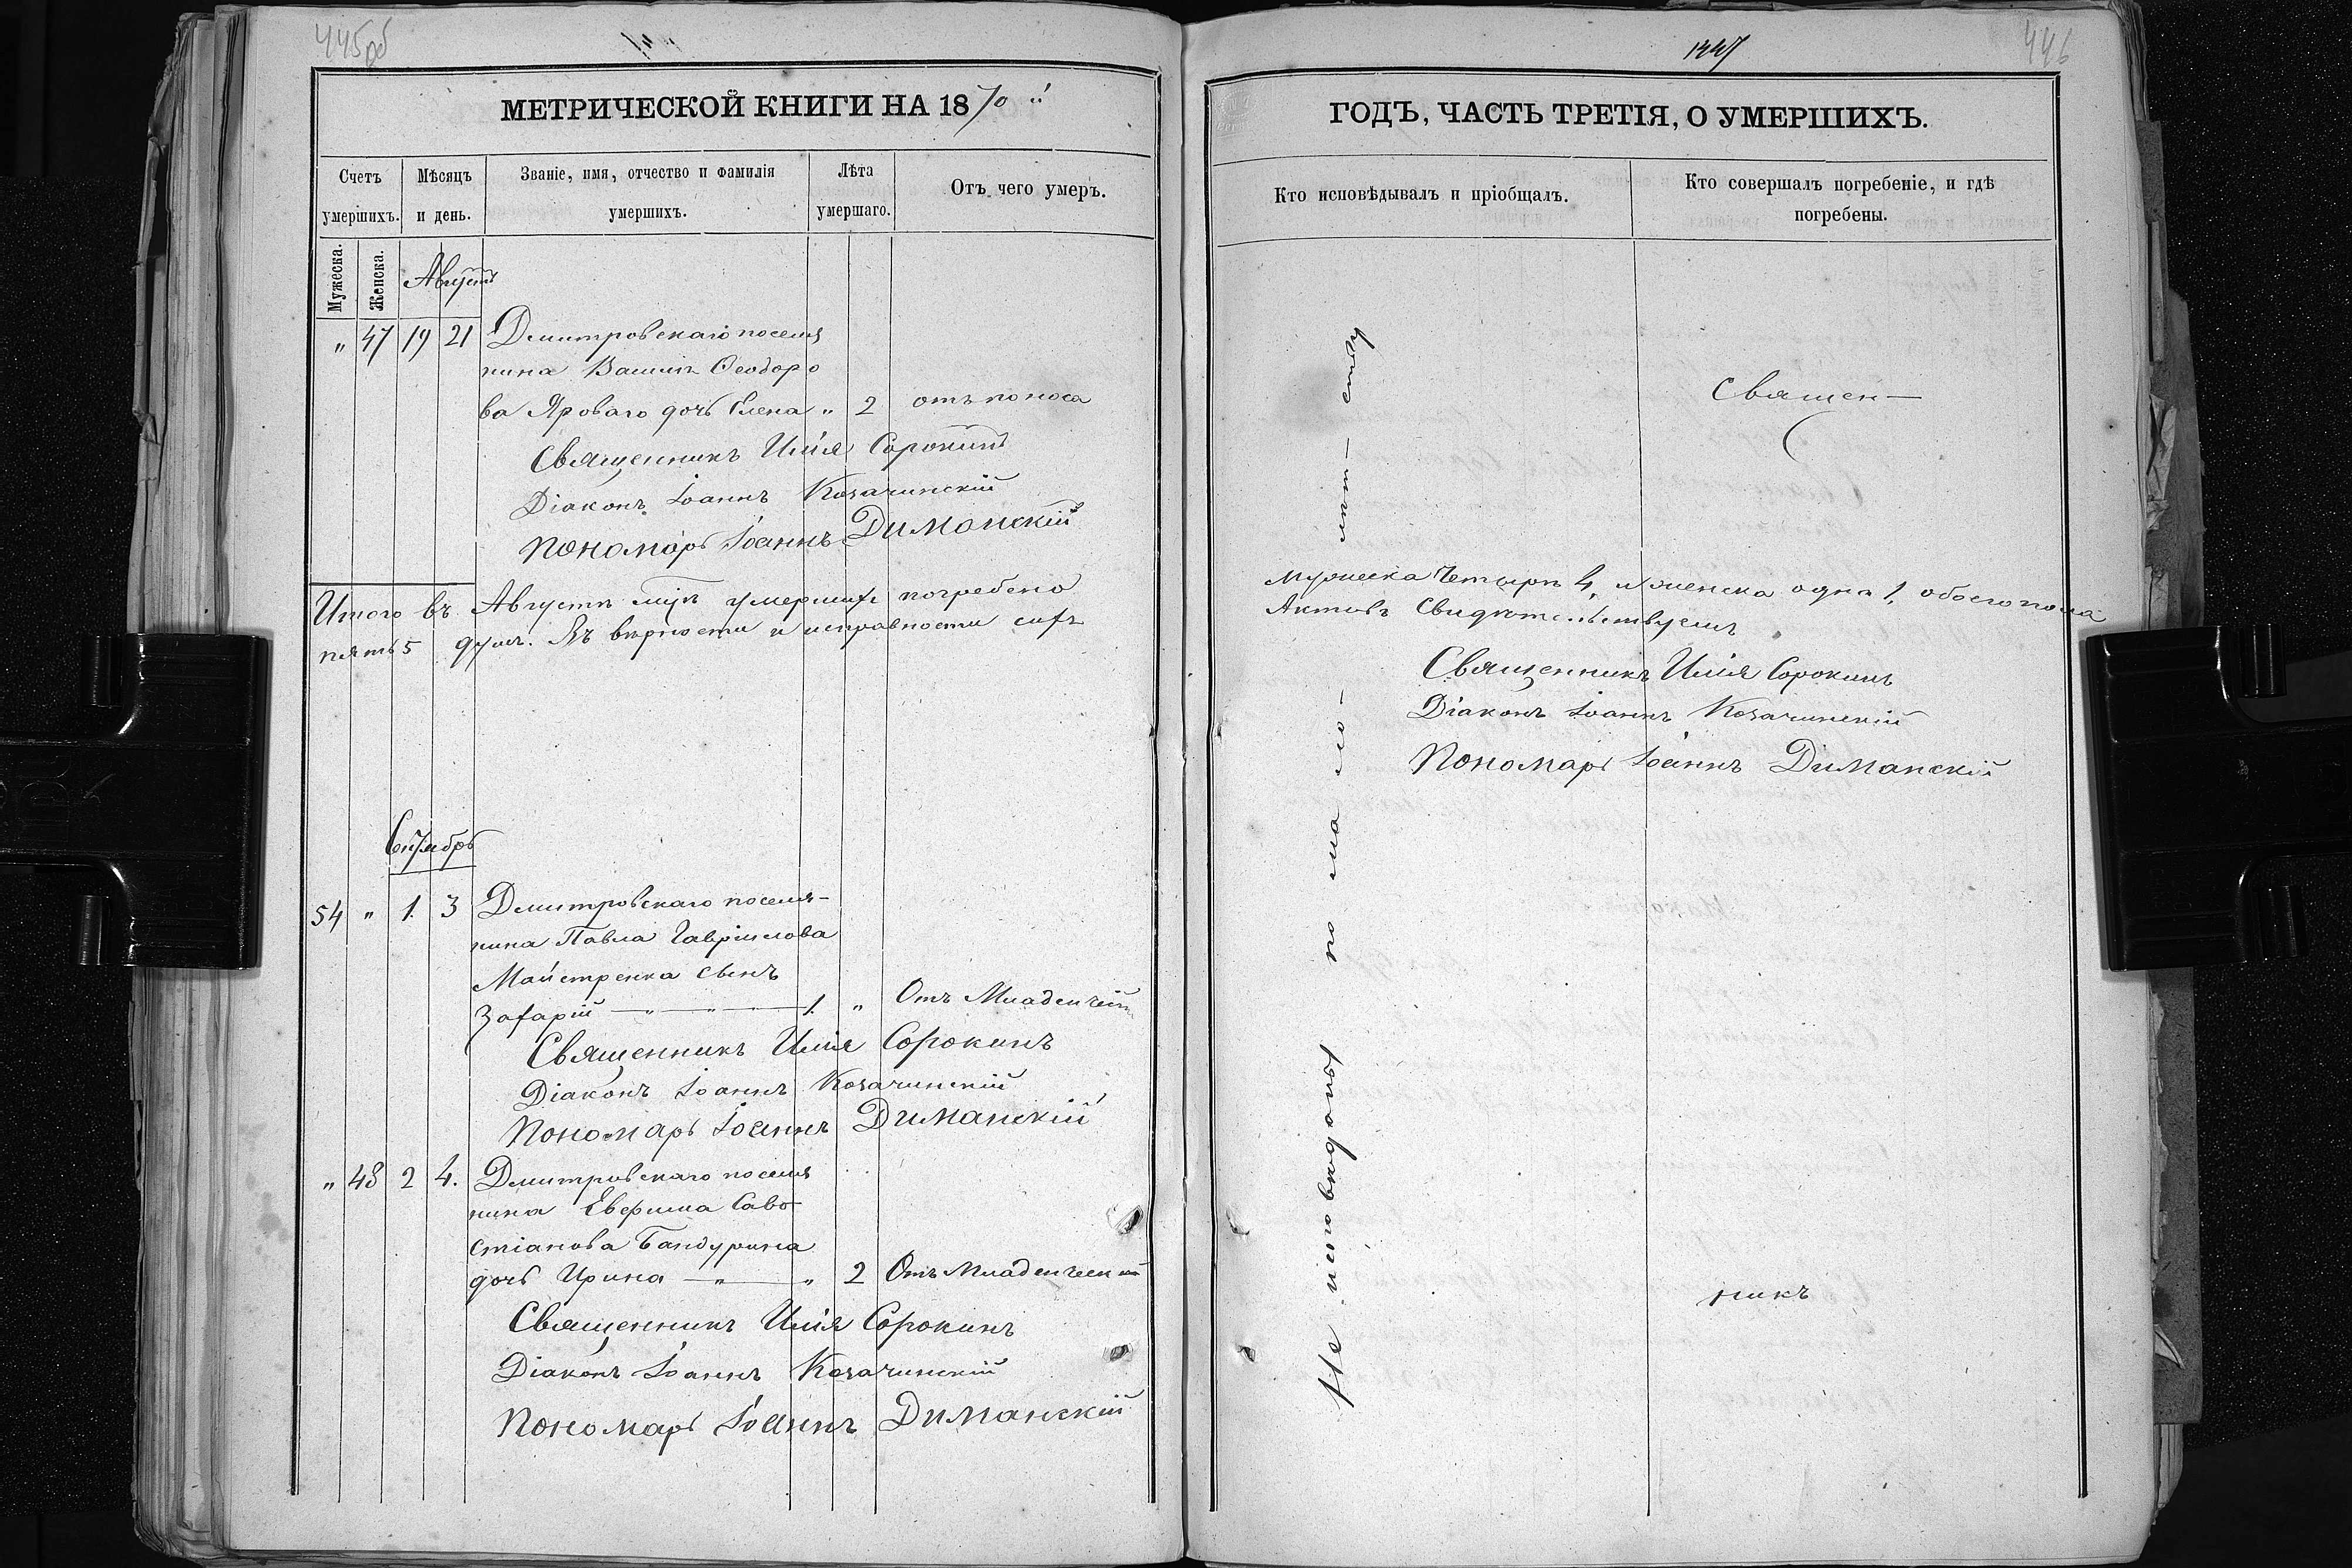 445об
МЕТРИЧЕСКОЙ КНИГИ НА 1870 й
Счетъ умершихъ.
Мѣсяцъ и день.
Званіе, имя, отчество и фамилія умершихъ.
Лѣта умершаго.
Отъ чего умеръ.
Мужеска.
Женска.
Августъ
" 47 19 21 Дмитровскаго поселя
нина Васил Ѳеодоро
ва Яроваго дочь Елена " 2 отъ поноса
Священникъ Илія Сорокинъ
Діаконъ Іоаннъ Козачинскій
Пономарь Іоаннъ Диманскій
Итого въ Августѣ мцѣ умершихъ погребено
пять 5 душъ. Въ вѣрности и исправности сихъ
Сентябрь
54 " 1. 3 Дмитровскаго поселя-
нина Павла Гавріилова
Майстренка сынъ
Захарій — " — " — 1. " Отъ Младенчей
Священникъ Илія Сорокинъ
Діаконъ Іоаннъ Козачинскій
Пономарь Іоаннъ Диманскій
" 48 2 4. Дмитровскаго поселя
нина Евфима Саво-
стіанова Бандурина
дочь Ирина — " — " 2 Отъ Младенческ
Священникъ Илія Сорокинъ
Діаконъ Іоаннъ Козачинскій
Пономарь Іоаннъ Диманскій
446
ГОДЪ, ЧАСТЬ ТРЕТІЯ, О УМЕРШИХЪ.
Кто исповѣдывалъ и пріобщалъ.
Кто совершалъ погребеніе, и гдѣ погребены.
Не исповѣданы по мало- лѣт- ству
Священ-
Мужеска Четыре 4, и женска одна 1, обоего пола
Актовъ Свидѣтельствуемъ
Священникъ Илія Сорокинъ
Діаконъ Іоаннъ Козачинскій
Пономарь Іоаннъ Диманскій
никъ